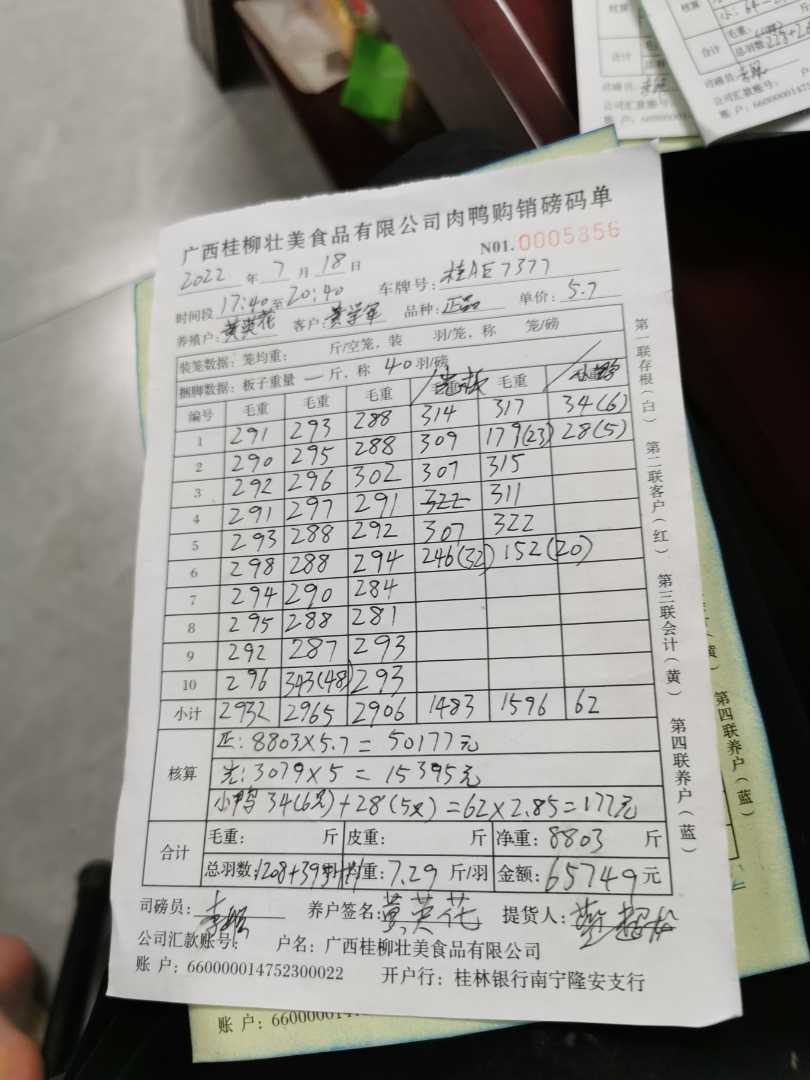 广西桂柳壮美食品有限公司肉鸭购销磅码单
2022 年 7 月 18 日 N01.0005856
时间段 17:40 至 20:40 车牌号: 桂AE7377
养殖户: 黄英花 客户: 黄学军 品种: 正品 单价: 5.7
装笼数据: 笼均重: 斤/空笼, 装 羽/笼, 称 笼/磅
捆脚数据: 板子重量 — 斤, 称 40 羽/磅
编号 毛重 毛重 毛重 毛重
1 291 293 288 314 317 34(6)
2 290 295 288 309 179(23) 28(5)
3 292 296 302 307 315
4 291 297 291 322 311
5 293 288 292 307 322
6 298 288 294 246(32) 152(20)
7 294 290 284
8 295 288 281
9 292 287 293
10 296 343(48) 293
小计 2932 2965 2906 1483 1596 62
核算
正: 8803×5.7= 50177元
光: 3079×5= 15395元
小鸭 34(6只)+28(5只)=62×2.85=177元
合计
毛重: 斤 皮重: 斤 净重: 8803 斤
总羽数: 1208+39 重: 7.29 斤/羽 金额: 65749元
司磅员: 养户签名: 黄英花 提货人:
公司汇款账号: 户名: 广西桂柳壮美食品有限公司
账 户: 660000014752300022 开户行: 桂林银行南宁隆安支行
第一联存根(白) 第二联客户(红) 第三联会计(黄) 第四联养户(蓝)
第四联养户(蓝)
账 户: 66000001
核算
合计
毛重:
总羽数:
司磅员:
公司汇款账号:
账 户: 6600000147523000